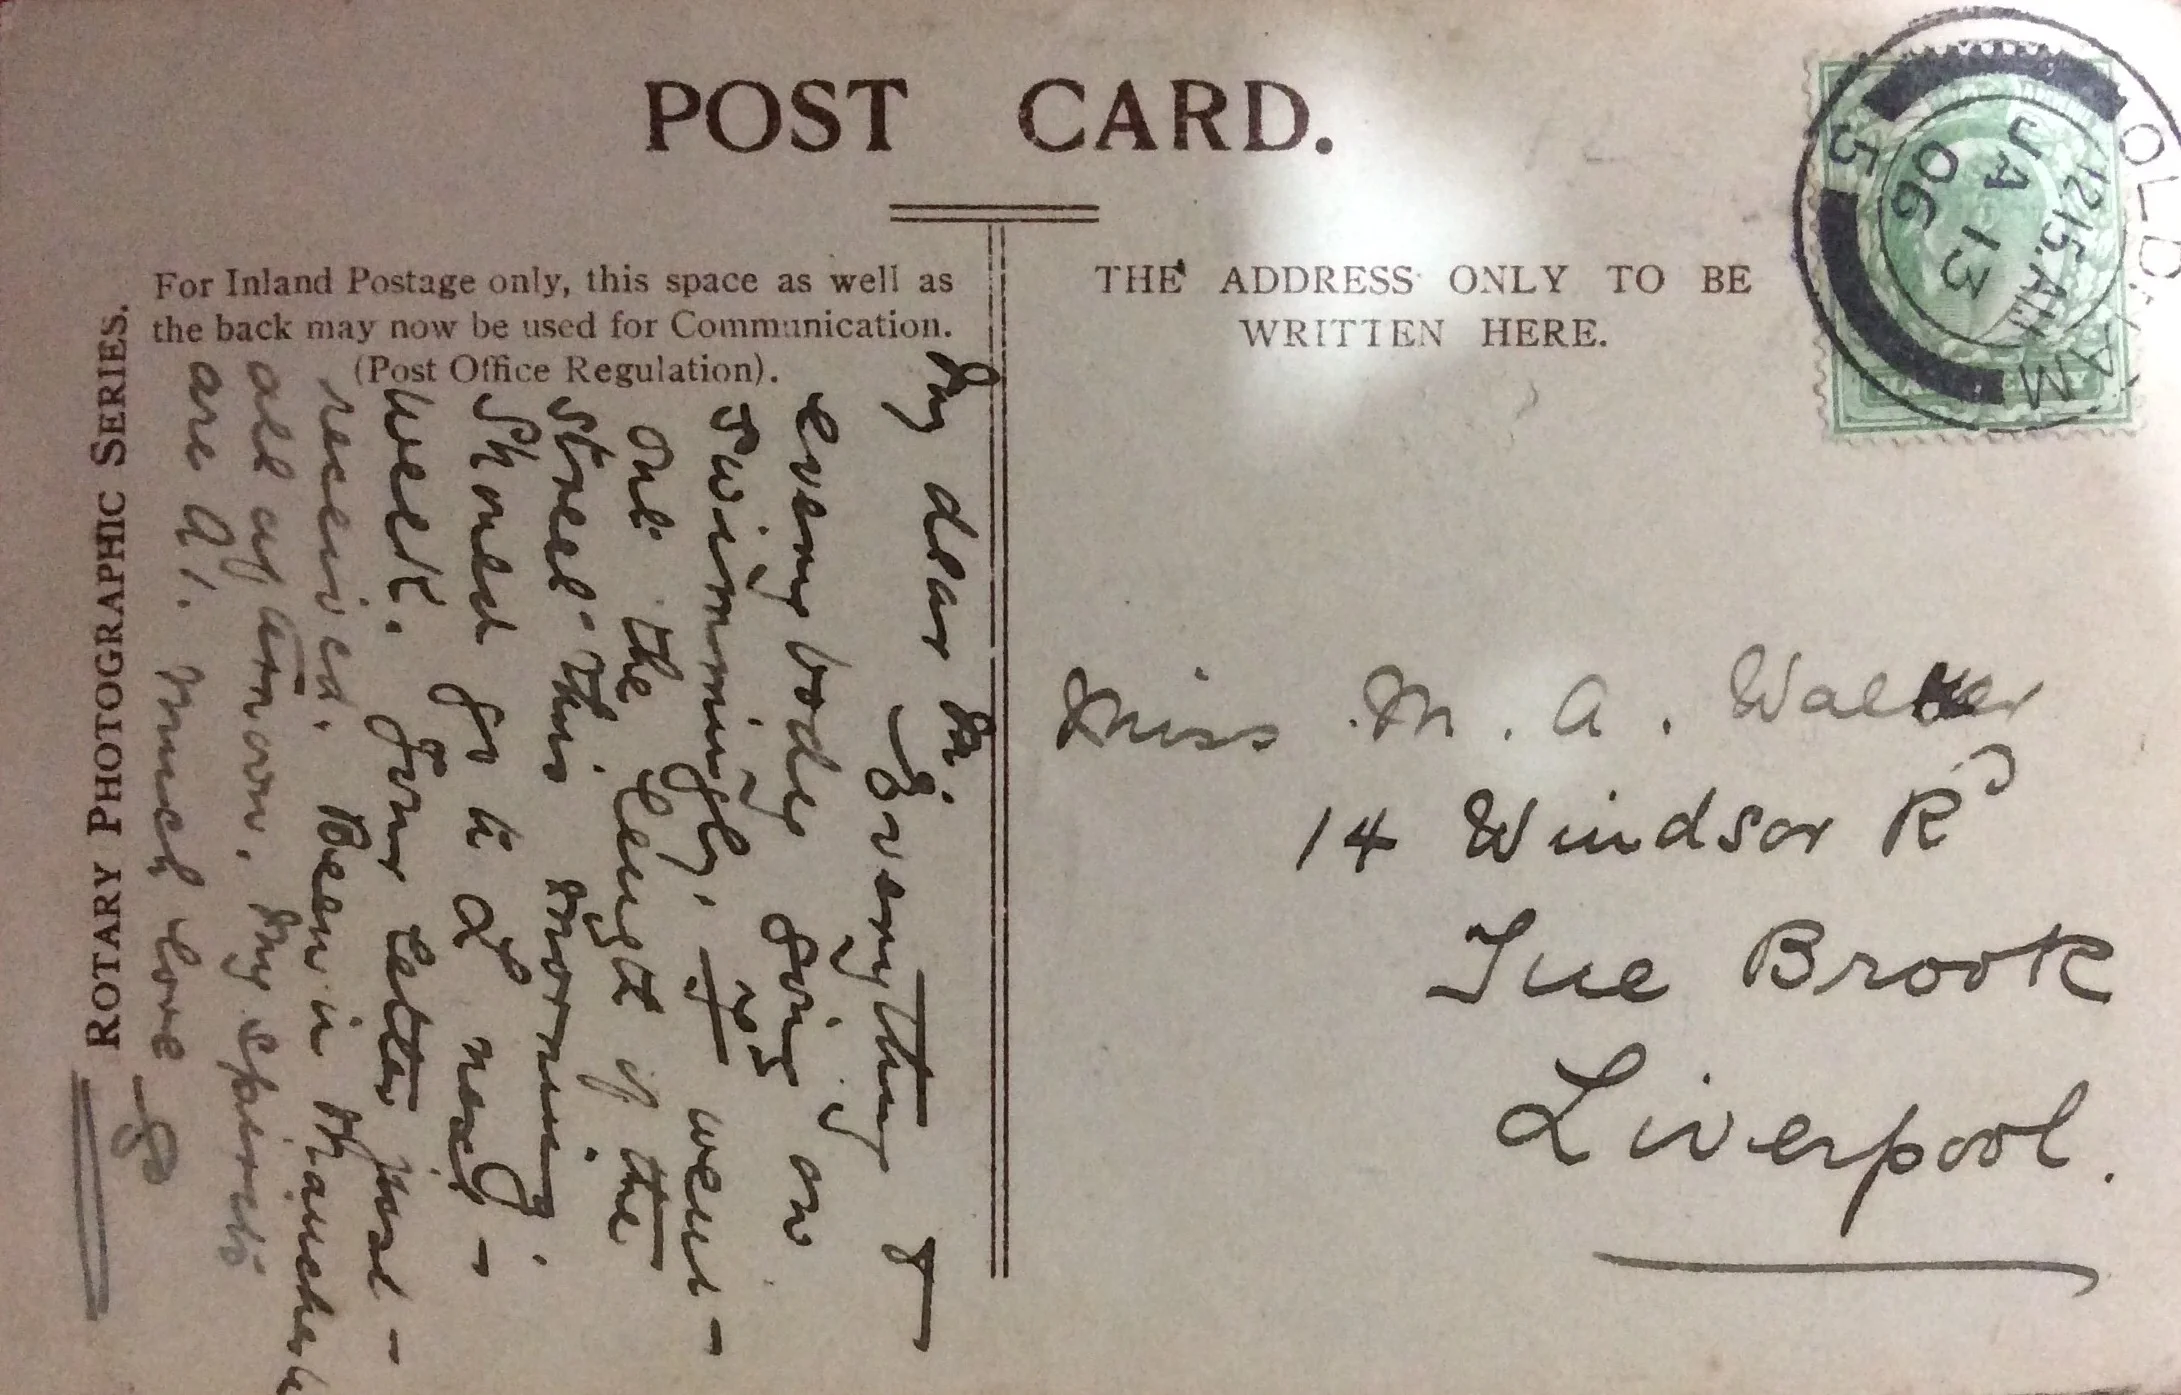 POST CARD.
For Inland Postage only, this space as well as
the back may now be used for Communication.
(Post Office Regulation).
THE ADDRESS ONLY TO BE
WRITTEN HERE.
ROTARY PHOTOGRAPHIC SERIES.
OLDHAM
12 15 AM
JA 13
06
5
My dear M.
Everything &
everybody going on
swimmingly, went
out the length of the
street this morning.
Shoned go to L next
week. Your letter just
received. Been in Manchester
all afternoon. My spirits
are A1. Much love
Miss M. A. Walker
14 Windsor Rd
Tue Brook
Liverpool.